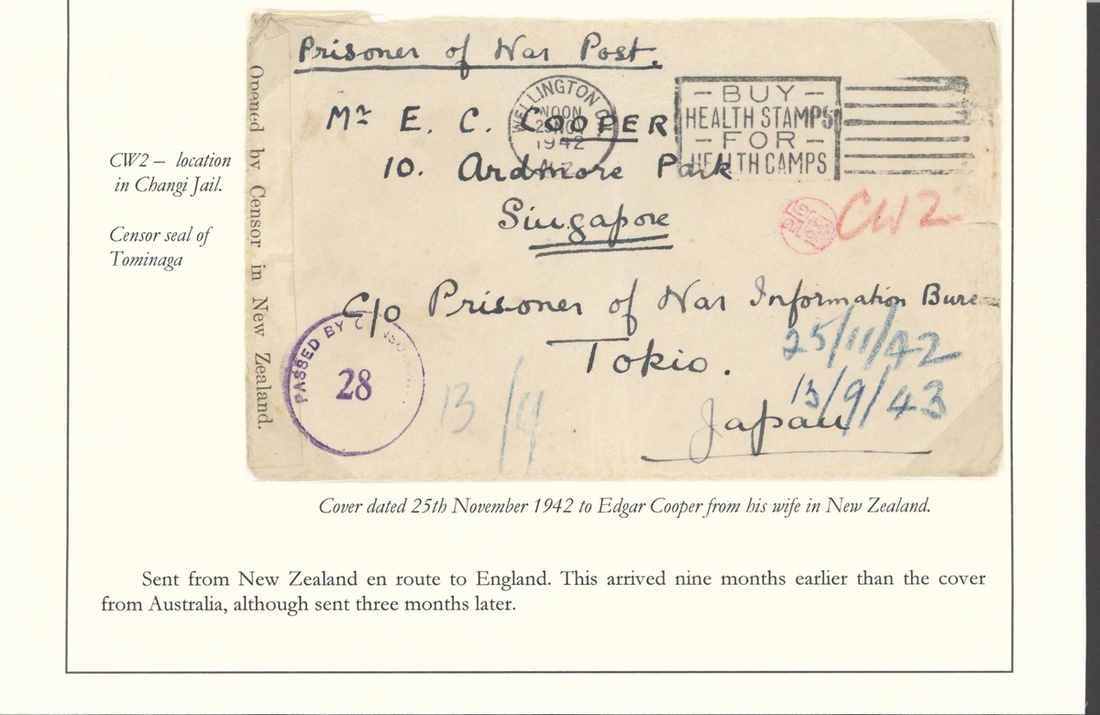 Prisoner of War Post.
Opened by Censor in New Zealand.
WELLINGTON
NOON
1942
- BUY -
HEALTH STAMPS
- FOR -
HEALTH CAMPS
Mr E. C. COOPER
10. Ardmore Park
Singapore
CW2
C/o Prisoner of War Information Bure
Tokio.
Japan
25/11/42
13/9/43
PASSED BY
28
CW2 – location
in Changi Jail.
Censor seal of
Tominaga
Cover dated 25th November 1942 to Edgar Cooper from his wife in New Zealand.
Sent from New Zealand en route to England. This arrived nine months earlier than the cover
from Australia, although sent three months later.